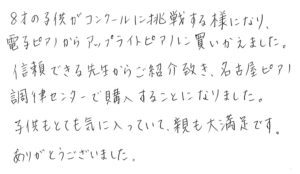 8才の子供がコンクールに挑戦する様になり、
電子ピアノからアップライトピアノに買いかえました。
信頼できる先生からご紹介頂き、名古屋ピアノ
調律センターで購入することになりました。
子供もとても気に入っていて、親も大満足です。
ありがとうございました。